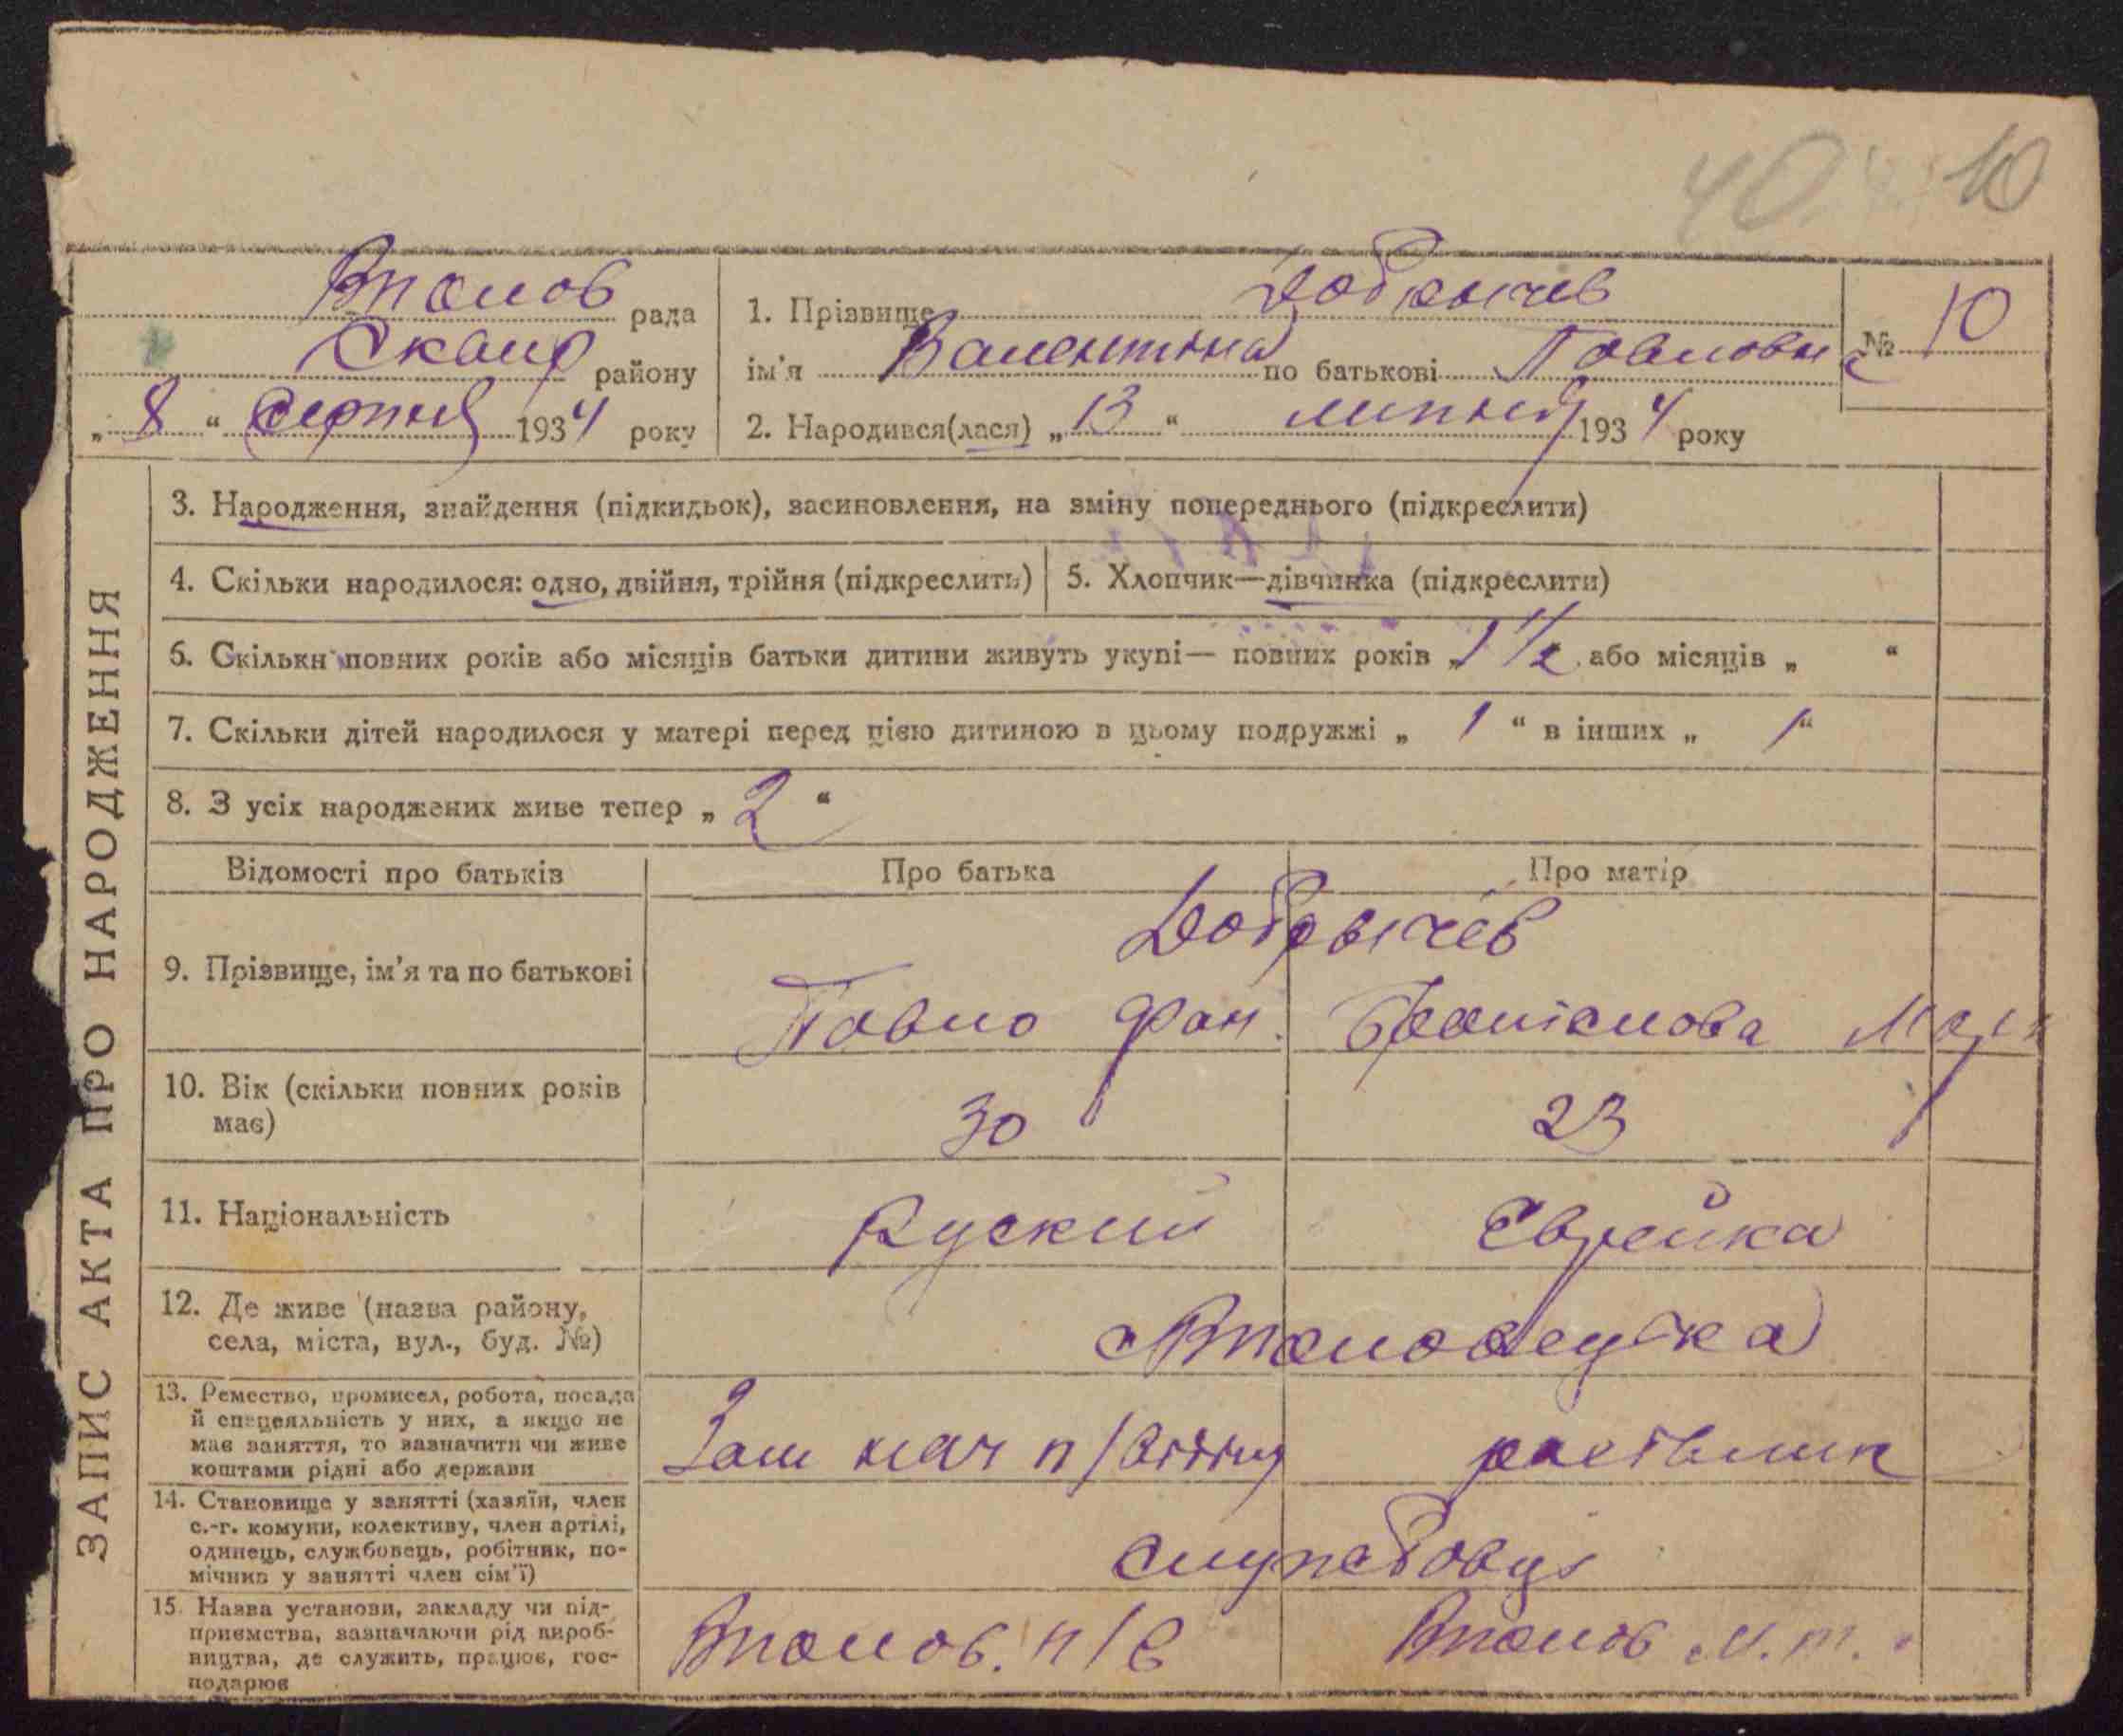 40 10
Втилов рада
Сквир району
„ 8 “ Серпня 1934 року
1. Прізвище Добрычев
ім'я Валентина по батькові Павловна
№ 10
2. Народився(лася) „ 13 “ липня 1934 року
ЗАПИС АКТА ПРО НАРОДЖЕННЯ
3. Народження, знайдення (підкидьок), засиновлення, на зміну попереднього (підкреслити)
4. Скільки народилося: одно, двійня, трійня (підкреслить)
5. Хлопчик—дівчинка (підкреслити)
6. Скільки повних років або місяців батьки дитини живуть укупі— повних років „ 1 1/2 або місяців „ “
7. Скільки дітей народилося у матері перед цією дитиною в цьому подружжі „ 1 “ в інших „ 1 “
8. З усіх народжених живе тепер „ 2 “
Відомості про батьків
Про батька
Про матір
9. Прізвище, ім'я та по батькові
Добрычев
Павло
10. Вік (скільки повних років
має)
30
23
11. Національність
Руский
Еврейка
12. Де живе (назва району,
села, міста, вул., буд. №)
13. Ремество, промисел, робота, посада
й спецеяльність у них, а якщо не
має заняття, то зазначити чи живе
коштами рідні або держави
14. Становище у занятті (хазяїн, член
с.-г. комуни, колективу, член артілі,
одинець, службовець, робітник, по-
мічник у занятті член сім'ї)
15. Назва установи, закладу чи під-
приємства, зазначаючи рід вироб-
ництва, де служить, працює, гос-
подарює